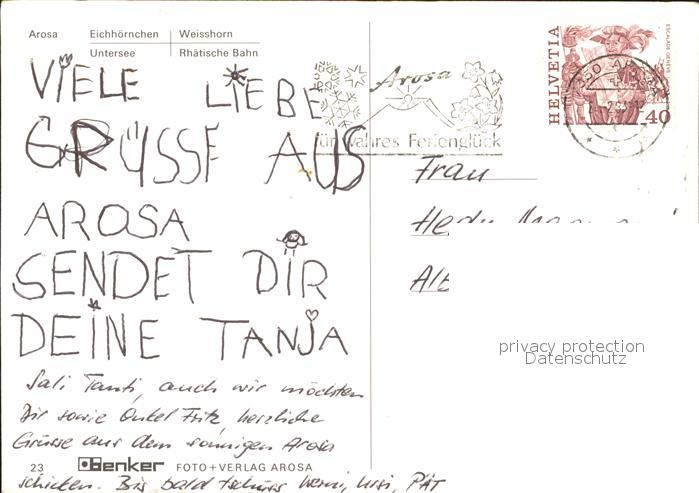 Arosa Eichhörnchen Weisshorn
Untersee Rhätische Bahn
VIELE LIEBE
GRÜSSE AUS
AROSA
SENDET DIR
DEINE TANJA
Sali Tanti, auch wir möchten
Dir sowie Onkel Fritz, herzliche
Grüsse aus dem sonnigen Arosa
schicken. Bis bald tschüss
23 Benker FOTO+VERLAG AROSA
Arosa
für wahres Ferienglück
HELVETIA
40
AROSA
Frau
privacy protection
Datenschutz